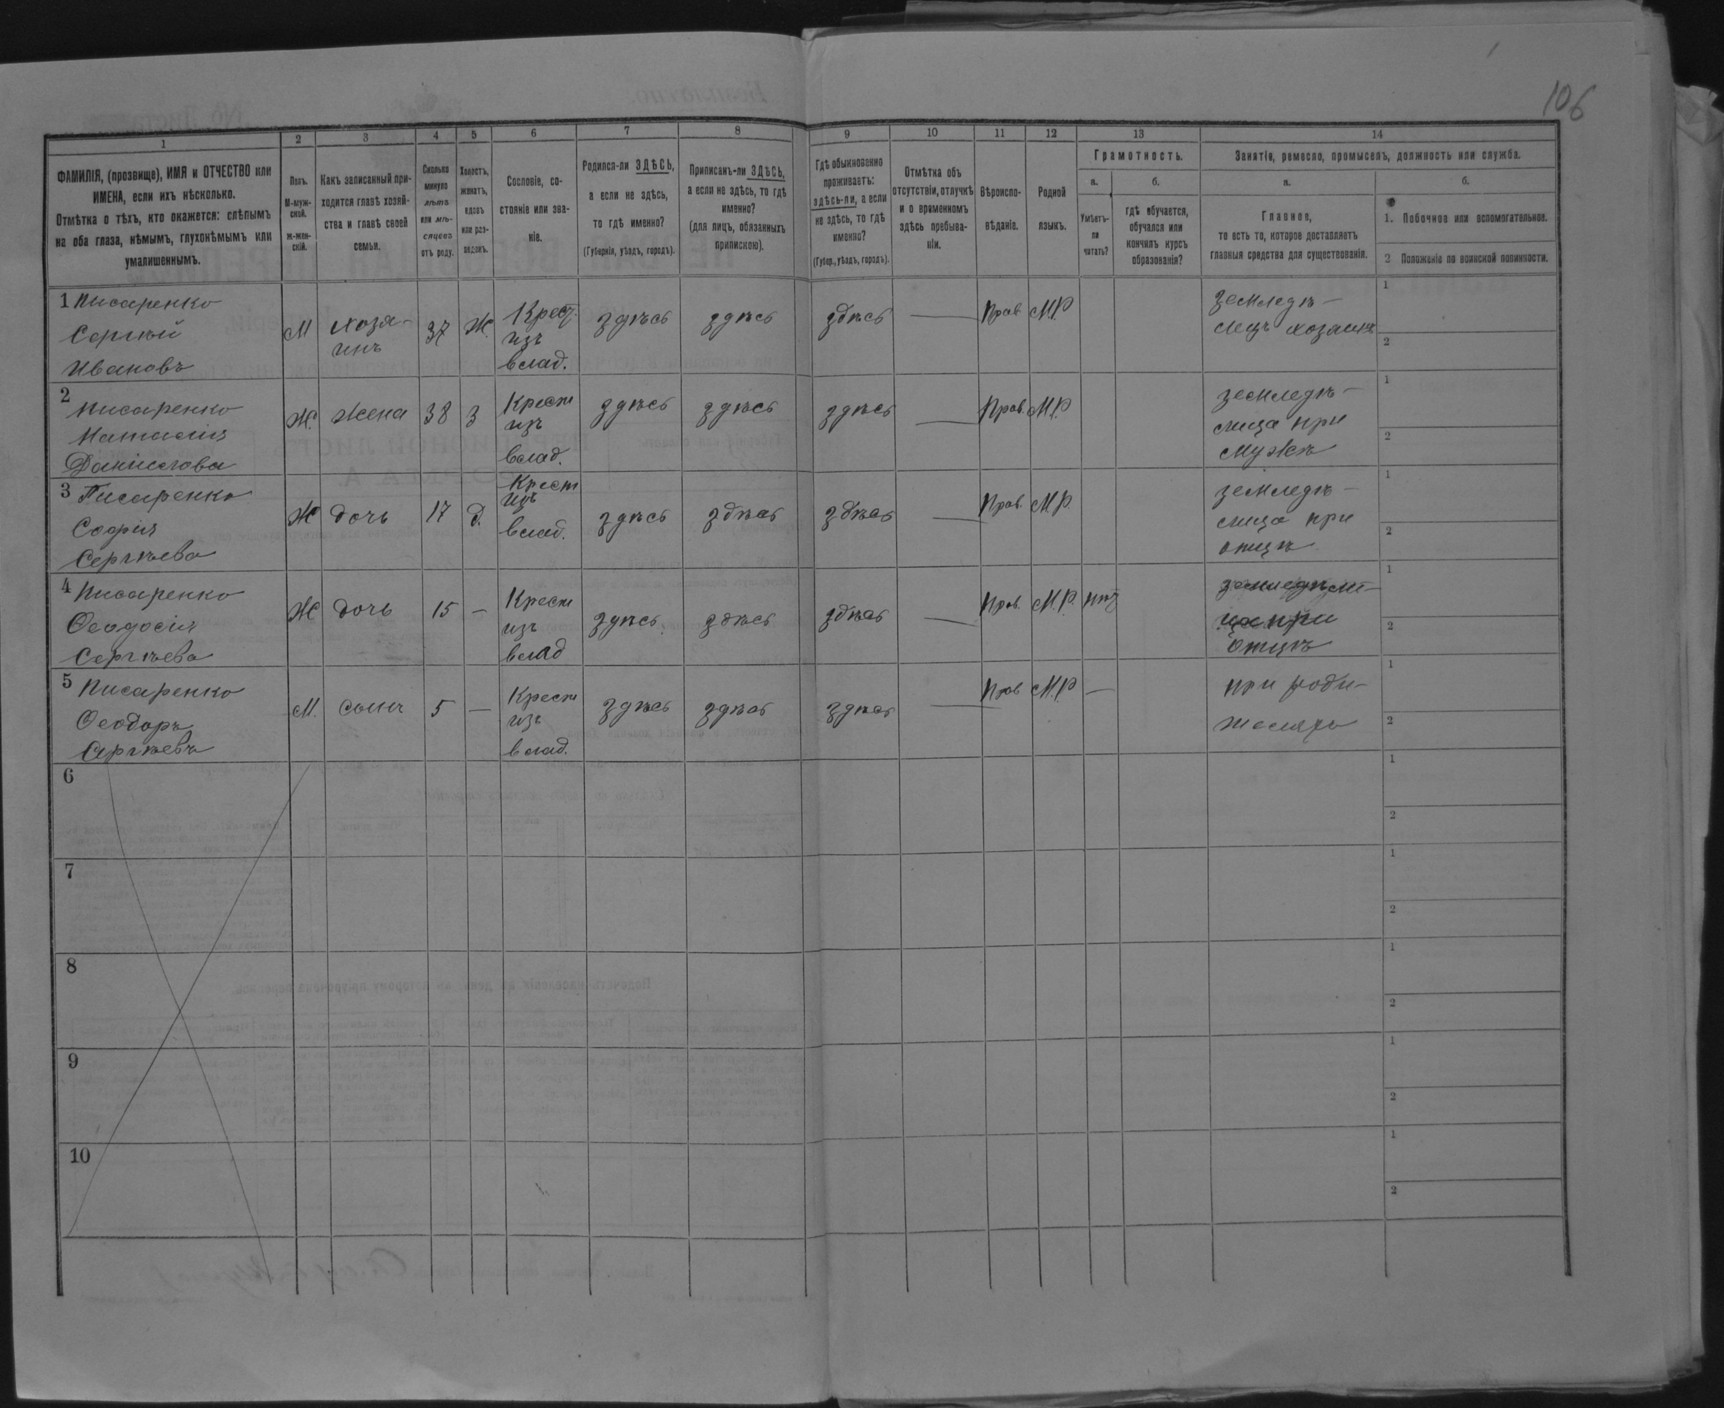 106
1 2 3 4 5 6 7 8 9 10 11 12 13 14
ФАМИЛІЯ, (прозвище), ИМЯ и ОТЧЕСТВО или ИМЕНА, если ихъ нѣсколько.
Отмѣтка о тѣхъ, кто окажется: слѣпымъ на оба глаза, нѣмымъ, глухонѣмымъ или умалишеннымъ.
Полъ. М-мужской. ж-женскій.
Какъ записанный приходится главѣ хозяйства и главѣ своей семьи.
Сколько минуло лѣтъ или мѣсяцевъ отъ роду.
Холостъ, женатъ, вдовъ или разведенъ.
Сословіе, состояніе или званіе.
Родился-ли ЗДѢСЬ, а если не здѣсь, то гдѣ именно? (Губернія, уѣздъ, городъ).
Приписанъ-ли ЗДѢСЬ, а если не здѣсь, то гдѣ именно? (для лицъ, обязанныхъ припискою).
Гдѣ обыкновенно проживаетъ: здѣсь-ли, а если не здѣсь, то гдѣ именно? (Губер., уѣздъ, городъ).
Отмѣтка объ отсутствіи, отлучкѣ и о временномъ здѣсь пребываніи.
Вѣроисповѣданіе.
Родной языкъ.
Грамотность.
а.
Умѣетъ-ли читать?
б.
гдѣ обучается, обучался или кончилъ курсъ образованія?
Занятіе, ремесло, промыселъ, должность или служба.
а.
Главное,
то есть то, которое доставляетъ главныя средства для существованія.
б.
1. Побочное или вспомогательное.
2 Положеніе по воинской повинности.
1 Писаренко Сергѣй Ивановъ М хозяинъ 37 Ж. Крест. изъ влад. здѣсь здѣсь здѣсь — Прав. М.Р. земледѣлецъ хозяинъ 1 2
2 Писаренко Наталія Даниилова Ж. жена 38 З Крест изъ влад. здѣсь здѣсь здѣсь — Прав. М.Р. земледѣлица при мужѣ 1 2
3 Писаренко Софія Сергѣева Ж дочь 17 д. Крест изъ влад. здѣсь здѣсь здѣсь — Прав. М.Р. земледѣлица при отцѣ 1 2
4 Писаренко Ѳеодосія Сергѣева Ж дочь 15 — Крест изъ влад здѣсь. здѣсь здѣсь — Прав. М.Р. нѣт при отцѣ 1 2
5 Писаренко Ѳеодоръ Сергѣевъ М. сынъ 5 — Крест изъ влад. здѣсь здѣсь здѣсь — Прав М.Р. — при родителяхъ 1 2
6 1 2
7 1 2
8 1 2
9 1 2
10 1 2